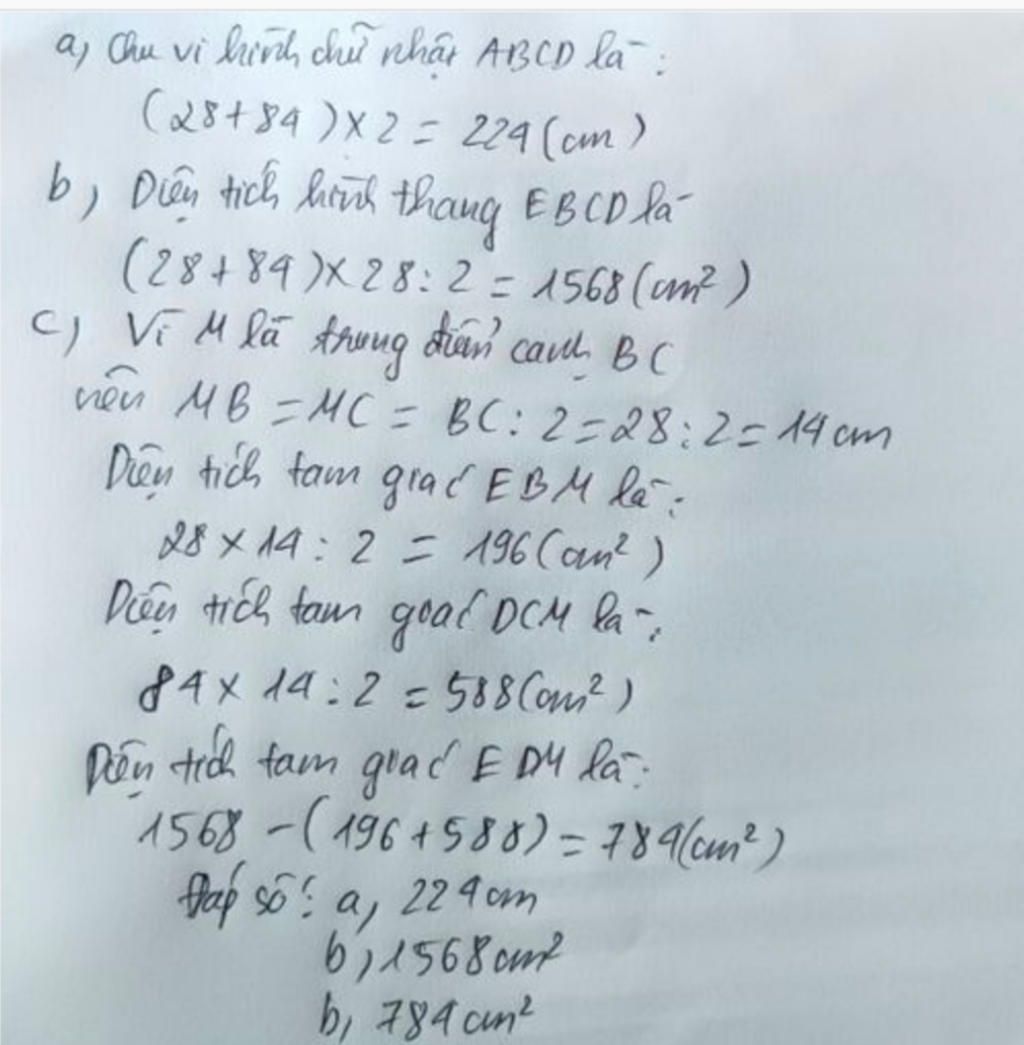 a, Chu vi hình chữ nhật ABCD là :
(28+84)×2 = 224 (cm)
b, Diện tích hình thang EBCD là
(28+84)×28:2 = 1568(cm²)
c, Vì M là trung điểm cạnh BC
nên MB = MC = BC: 2=28:2= 14 cm
Diện tích tam giác EBM là:
28 × 14 : 2 = 196(cm²)
Diện tích tam goác DCM là:
84 × 14 : 2 = 588(cm²)
Diện tích tam giác EDM là:
1568 -(196+588)= 784(cm²)
Đáp số: a, 224cm
b, 1568cm²
b, 784cm²